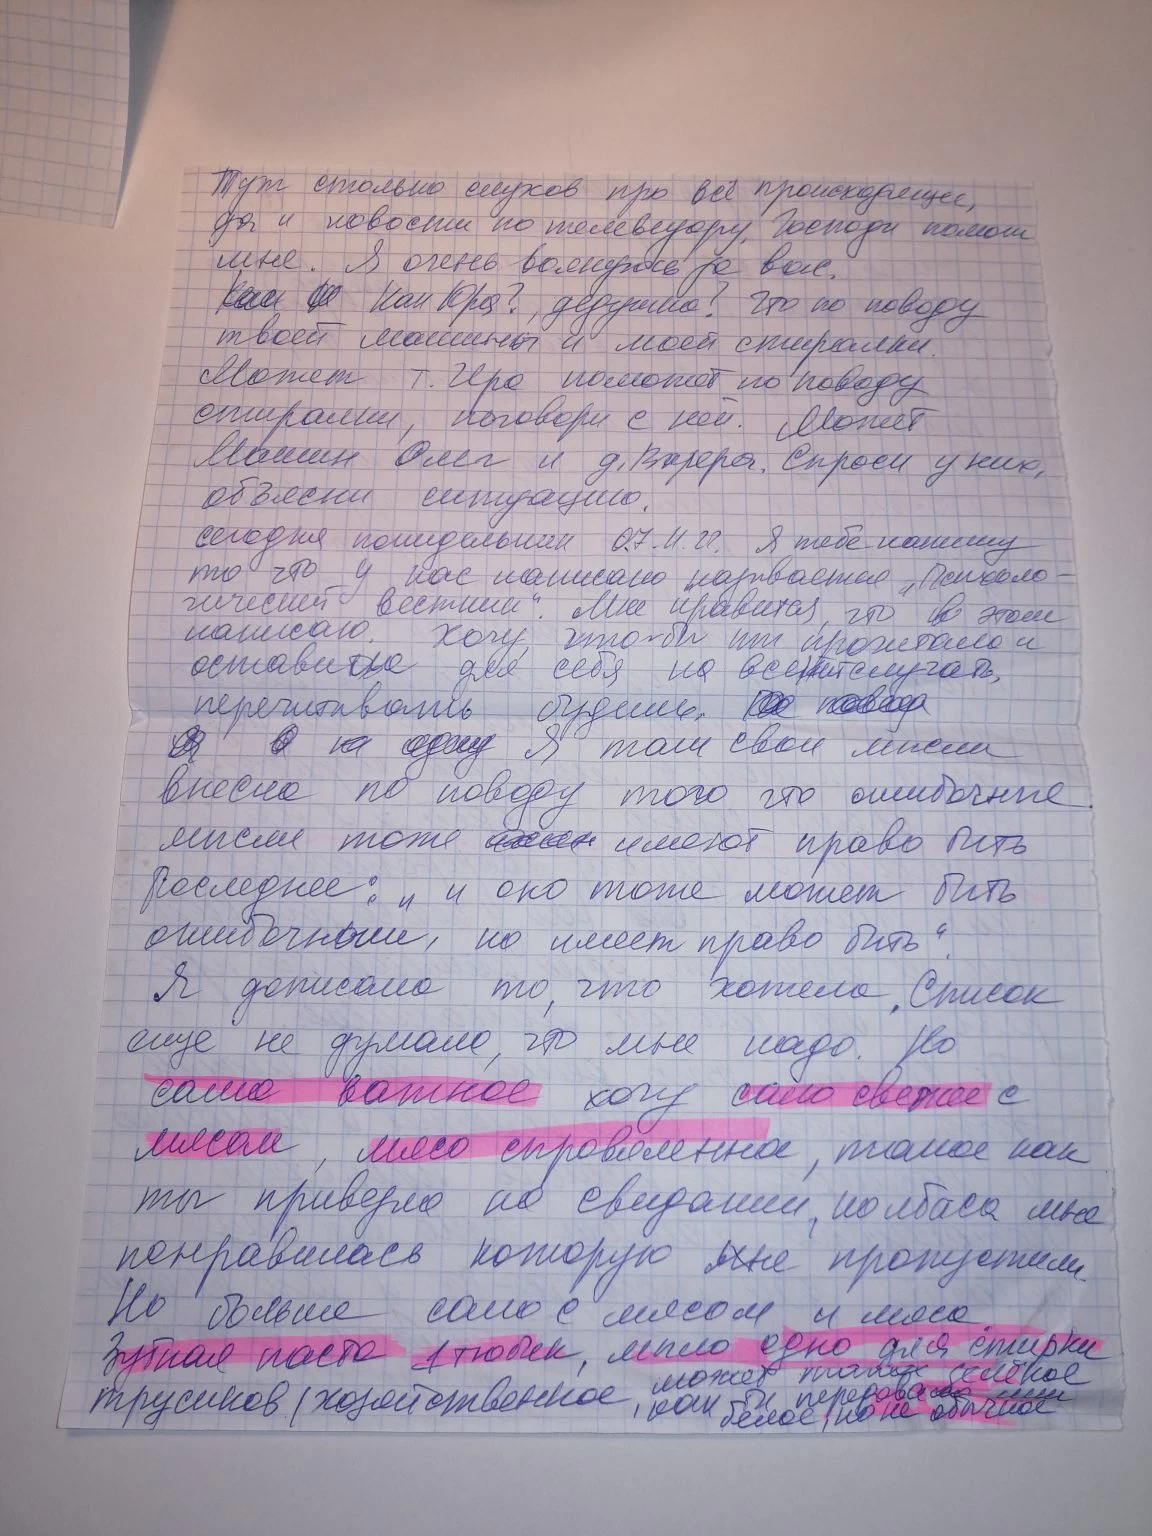 Тут столько слухов про всё происходящее,
да и новости по телевизору, Господи помоги
мне. Я очень волнуюсь за вас.
Как Юра?, дедушка? Что по поводу
твоей машины и моей стиралки.
Может т. Ира поможет по поводу
стиралки, поговори с ней. Может
Машин Олег и д. Валера. Спроси у них,
объясни ситуацию.
сегодня понидельник 07.11.22. Я тебе напишу
то что у нас написано называется „Психоло-
гический вестник". Мне нравится, что в этом
написано. Хочу, что-бы ты прочитала и
оставила для себя на всяк случать,
перечитывать будешь.
Я там свои мысли
внесла по поводу того что ошибочные
мысли тоже имеют право быть
Последнее: „и оно тоже может быть
ошибочным, но имеет право быть"
Я дописала то, что хотела. Список
еще не думала, что мне надо. Но
само важное хочу сало свежее с
мясом, мясо справленное, такое как
ты привезла на свидании, колбаса мне
понравилась которую мне пропустили.
Но больше сало с мясом и мясо
Зубная паста 1 тюбик, мыло одно для стирки
трусиков (хозяйственное, может такое зелёное
как бы
белое, но не обычное